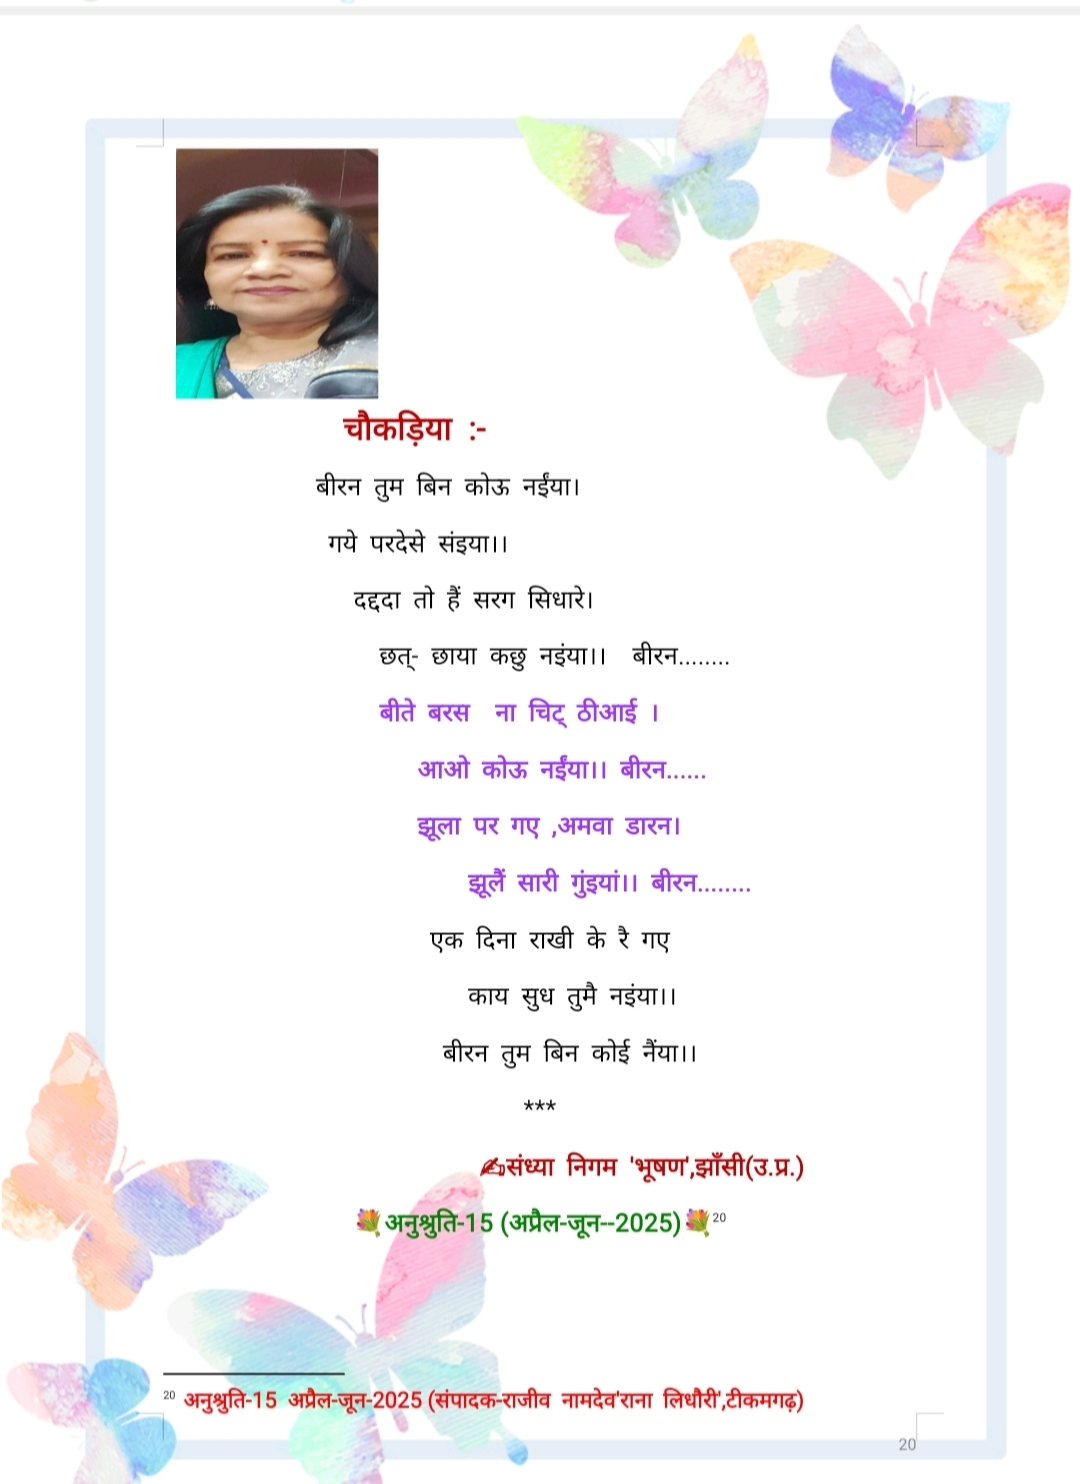 चौकड़िया :-
बीरन तुम बिन कोऊ नईंया।
गये परदेसे संइया।।
दद्ददा तो हैं सरग सिधारे।
छत्- छाया कछु नइंया।। बीरन........
बीते बरस ना चिट् ठीआई ।
आओ कोऊ नईंया।। बीरन......
झूला पर गए ,अमवा डारन।
झूलैं सारी गुंइयां।। बीरन........
एक दिना राखी के रै गए
काय सुध तुमै नइंया।।
बीरन तुम बिन कोई नैंया।।
***
✍संध्या निगम 'भूषण',झाँसी(उ.प्र.)
💐अनुश्रुति-15 (अप्रैल-जून--2025)💐20
20 अनुश्रुति-15 अप्रैल-जून-2025 (संपादक-राजीव नामदेव'राना लिधौरी',टीकमगढ़)
20